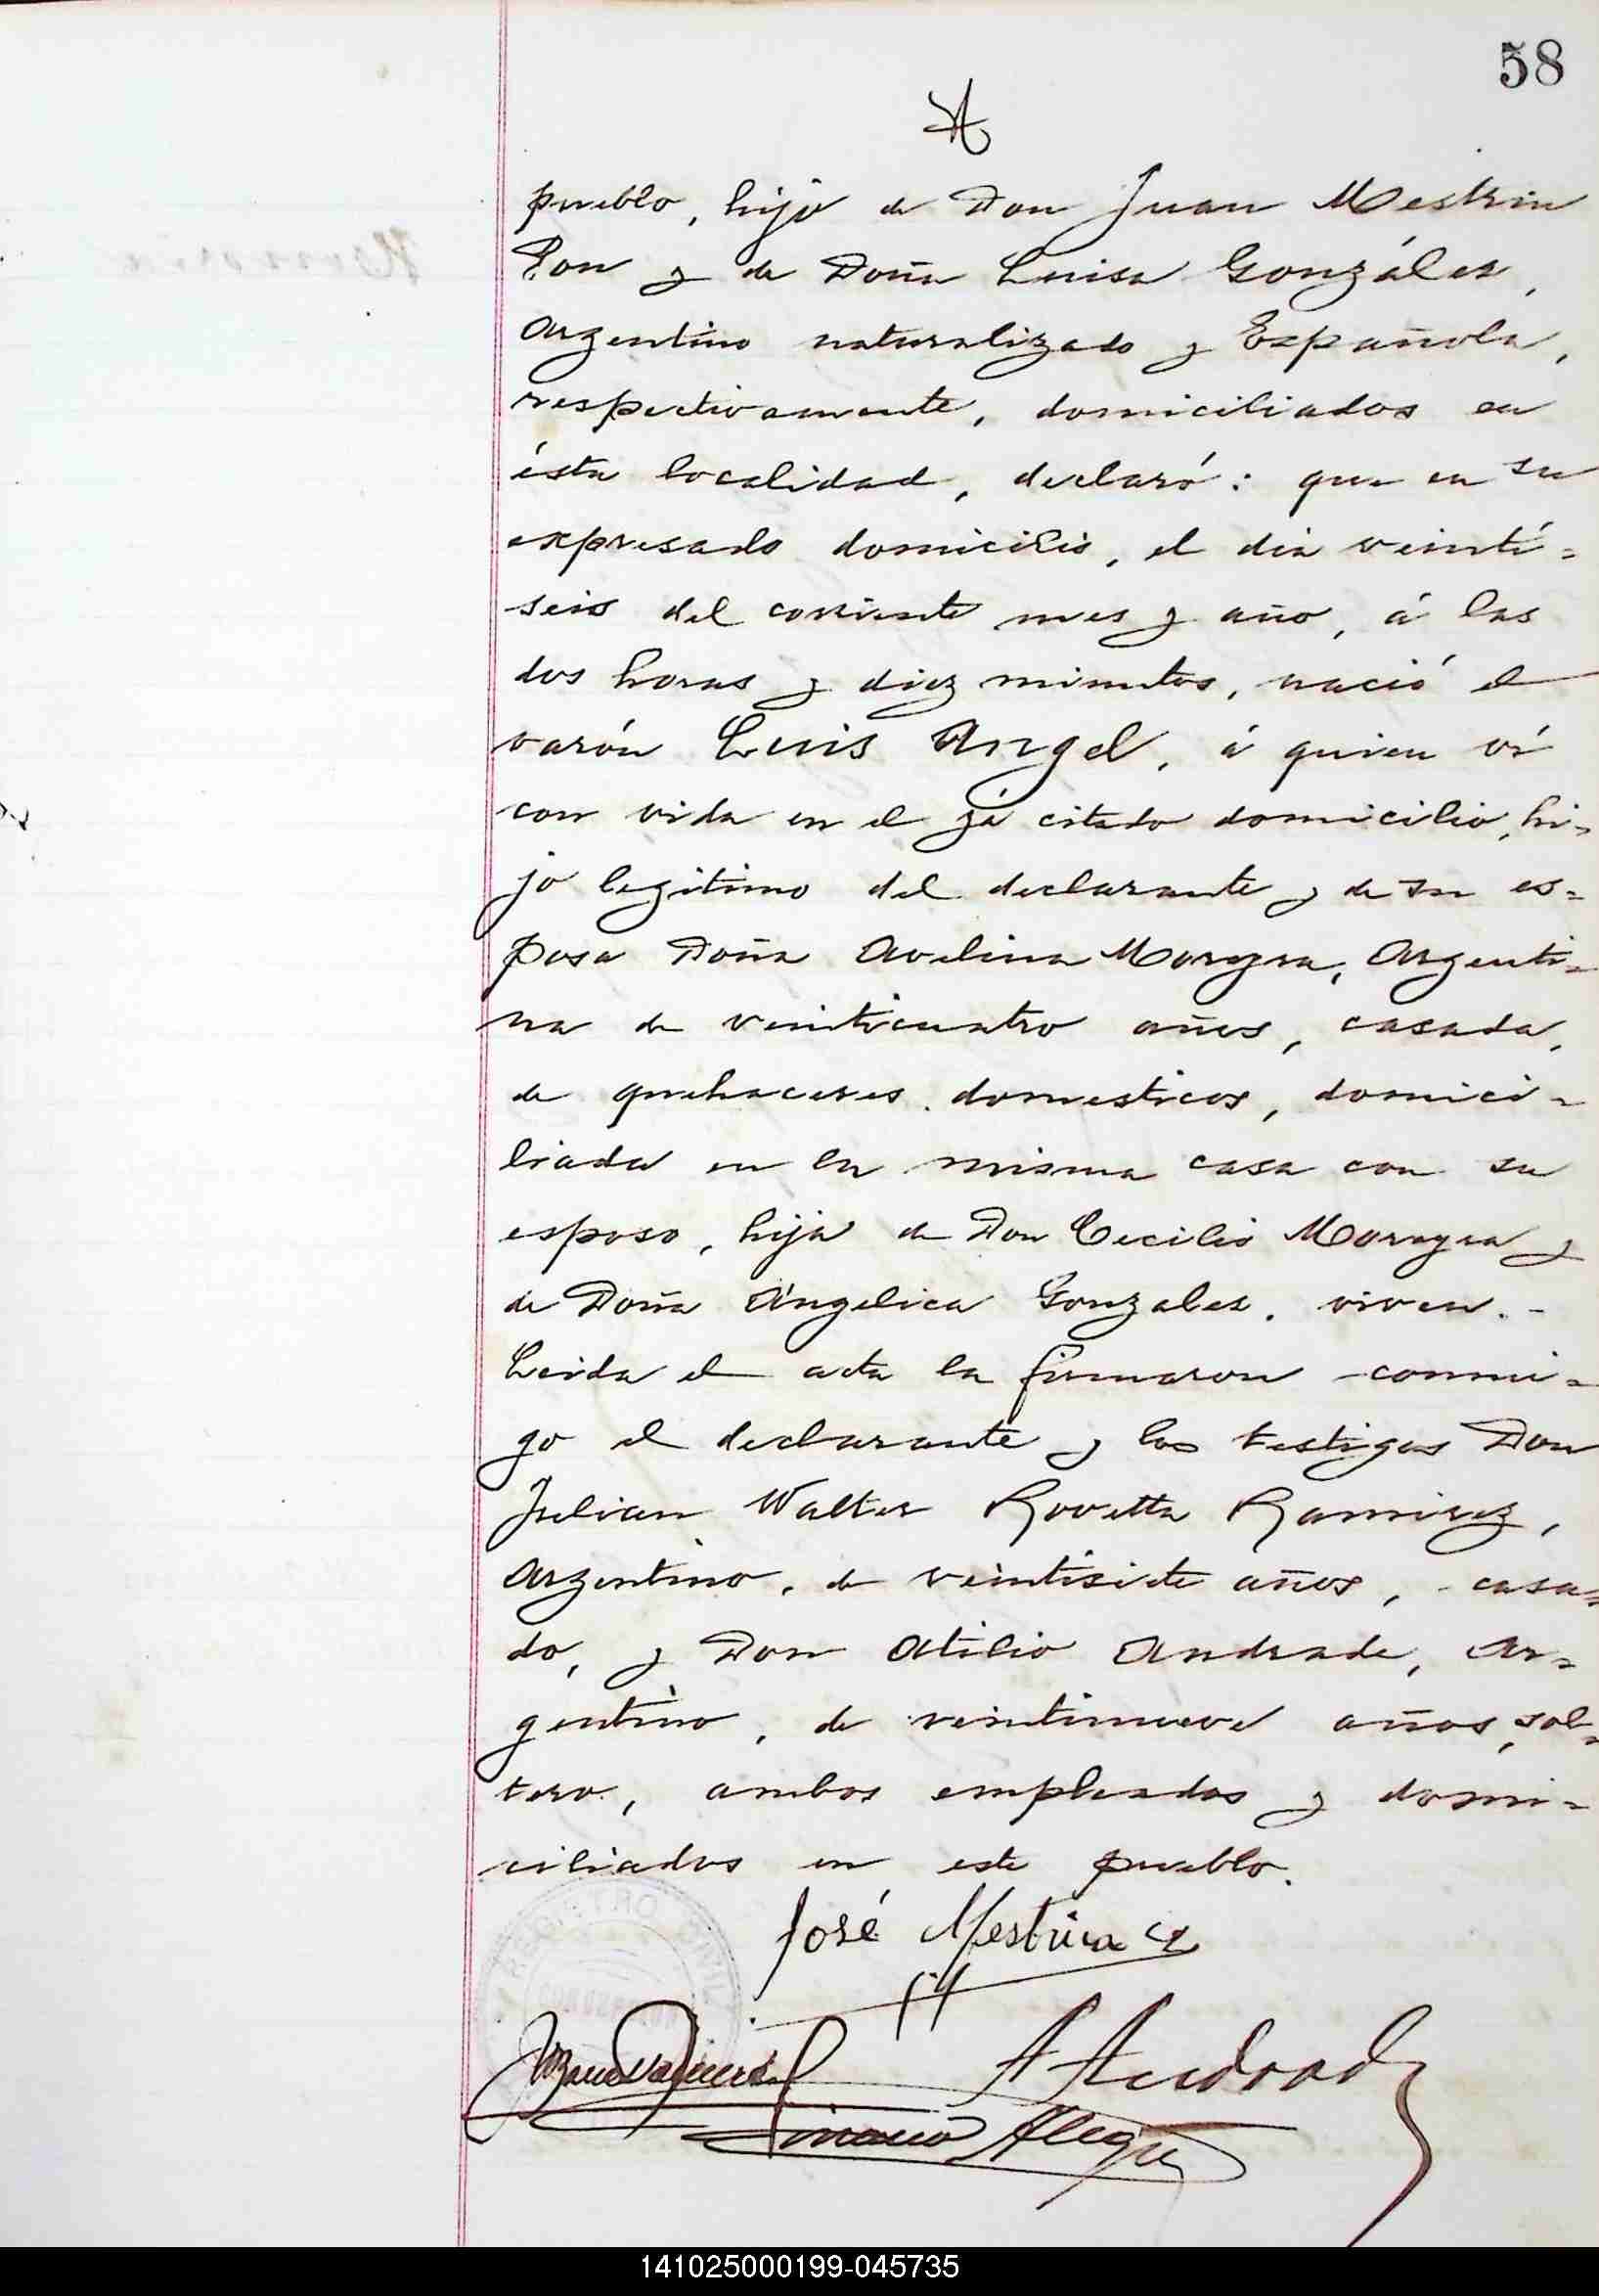 58
pueblo, hijo de Don Juan Mestrin
Pon y de Doña Luisa González,
Argentino naturalizado y Española,
respectivamente, domiciliados en
ésta localidad, declaró: que en su
expresado domicilio, el dia veinti=
seis del corriente mes y año, á las
dos horas y diez minutos, nació el
varón Luis Angel, á quien ví
con vida en el yá citado domicilio, hi=
jo legitimo del declarante y de su es=
posa Doña Avelina Moreyra, Argenti=
na de veinticuatro años, casada,
de quehaceres domesticos, domici=
liada en la misma casa con su
esposo, hija de Don Cecilio Moreyra y
de Doña Angelica Gonzalez. viven.-
Leida el acta la firmaron conmi=
go el declarante y los testigos Don
Julian Walter Rovetta Ramirez,
Argentino, de veintisiete años, casa=
do, y Don Atilio Andrade, Ar=
gentino, de veintinueve años, sol=
tero, ambos empleados y domi=
ciliados en este pueblo.
José
REGISTRO CIVIL
A Andrade
141025000199-045735